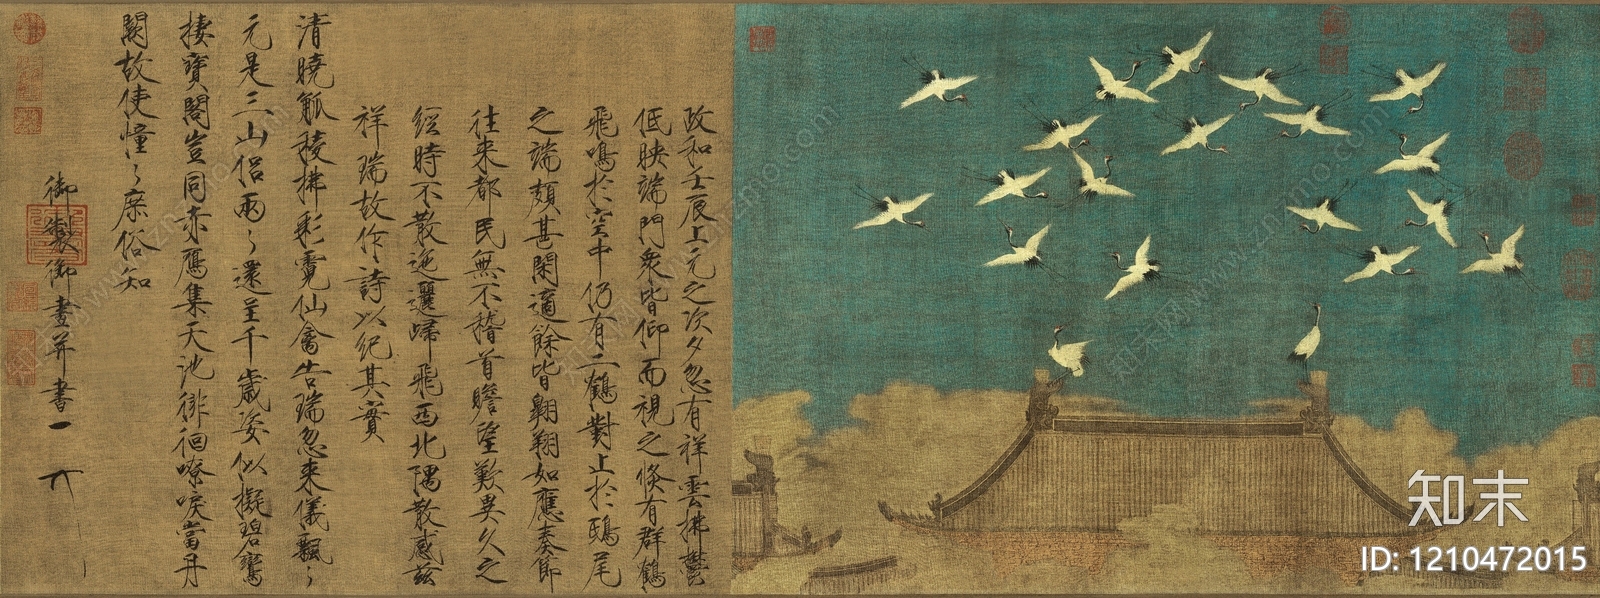 政和壬辰上元之次夕忽有祥雲拂鬱
低映端門衆皆仰而視之倏有群鶴
飛鳴於空中仍有二鶴對止於鴟尾
之端頗甚閑適餘皆翱翔如應奏節
往来都民無不稽首瞻望歎異久之
經時不散迤邐歸飛西北隅散感茲
祥瑞故作詩以紀其實
清曉觚稜拂彩霓仙禽告瑞忽来儀飄〻
元是三山侶兩〻還呈千歲姿似擬碧鸞
棲寶閣豈同赤鴈集天池徘徊嘹唳當丹
闕故使憧〻庶俗知
御製御畫并書
知末
ID: 1210472015